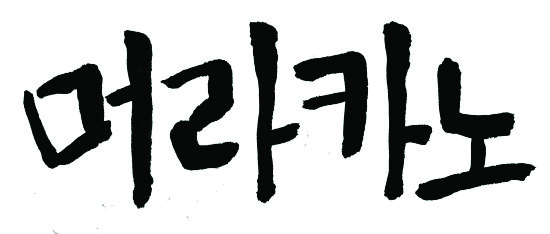 머라카노